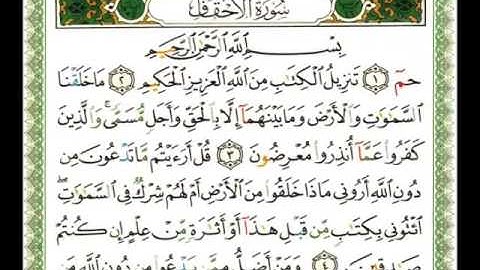 سُورَةُ الْأَحْقَافِ
بِسْمِ اللَّهِ الرَّحْمَٰنِ الرَّحِيمِ
حمٓ ١ تَنزِيلُ الْكِتَابِ مِنَ اللَّهِ الْعَزِيزِ الْحَكِيمِ ٢ مَا خَلَقْنَا
السَّمَٰوَٰتِ وَالْأَرْضَ وَمَا بَيْنَهُمَآ إِلَّا بِالْحَقِّ وَأَجَلٍ مُّسَمًّى ۚ وَالَّذِينَ
كَفَرُوا عَمَّآ أُنذِرُوا مُعْرِضُونَ ٣ قُلْ أَرَءَيْتُم مَّا تَدْعُونَ مِن
دُونِ اللَّهِ أَرُونِي مَاذَا خَلَقُوا مِنَ الْأَرْضِ أَمْ لَهُمْ شِرْكٌ فِي السَّمَٰوَٰتِ ۖ
ائْتُونِي بِكِتَابٍ مِّن قَبْلِ هَٰذَآ أَوْ أَثَارَةٍ مِّنْ عِلْمٍ إِن كُنتُمْ
صَادِقِينَ ٤ وَمَنْ أَضَلُّ مِمَّن يَدْعُوا مِن دُونِ اللَّهِ مَن